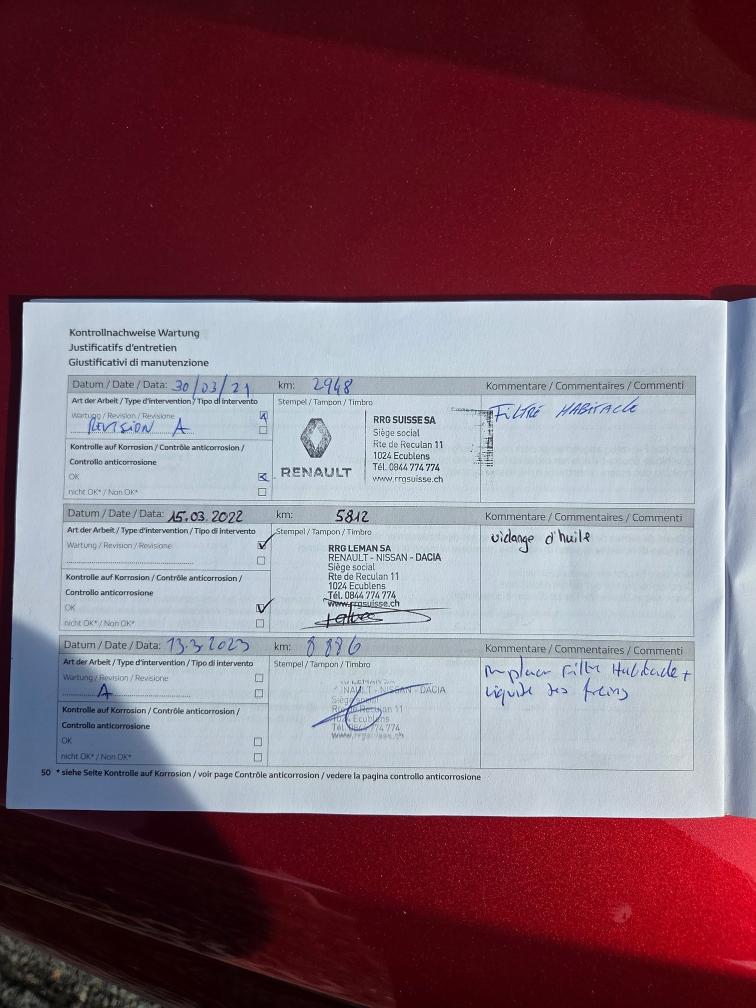 Kontrollnachweise Wartung
Justificatifs d'entretien
Giustificativi di manutenzione
Datum / Date / Data: 30/03/21 km: 2948 Kommentare / Commentaires / Commenti
Art der Arbeit / Type d'intervention / Tipo di intervento Stempel / Tampon / Timbro
Wartung / Revision / Revisione
REVISION A
Kontrolle auf Korrosion / Contrôle anticorrosion /
Controllo anticorrosione
OK
nicht OK* / Non OK*
RENAULT
RRG SUISSE SA
Siège social
Rte de Reculan 11
1024 Ecublens
Tél. 0844 774 774
www.rrgsuisse.ch
FILTRE HABITACLE
Datum / Date / Data: 15.03.2022 km: 5812 Kommentare / Commentaires / Commenti
Art der Arbeit / Type d'intervention / Tipo di intervento Stempel / Tampon / Timbro
Wartung / Revision / Revisione
Kontrolle auf Korrosion / Contrôle anticorrosion /
Controllo anticorrosione
OK
nicht OK* / Non OK*
RRG LEMAN SA
RENAULT - NISSAN - DACIA
Siège social
Rte de Reculan 11
1024 Ecublens
Tél. 0844 774 774
www.rrgsuisse.ch
vidange d'huile
Datum / Date / Data: 13.3.2023 km: 8886 Kommentare / Commentaires / Commenti
Art der Arbeit / Type d'intervention / Tipo di intervento Stempel / Tampon / Timbro
Wartung / Revision / Revisione
A
Kontrolle auf Korrosion / Contrôle anticorrosion /
Controllo anticorrosione
OK
nicht OK* / Non OK*
LEMAN
NAULT - NISSAN - DACIA
Siège social
Rte de Reculan 11
1024 Ecublens
Tél. 0844 774 774
www.rrgsuisse.ch
Filtre Habitacle +
liquide des freins
50 * siehe Seite Kontrolle auf Korrosion / voir page Contrôle anticorrosion / vedere la pagina controllo anticorrosione